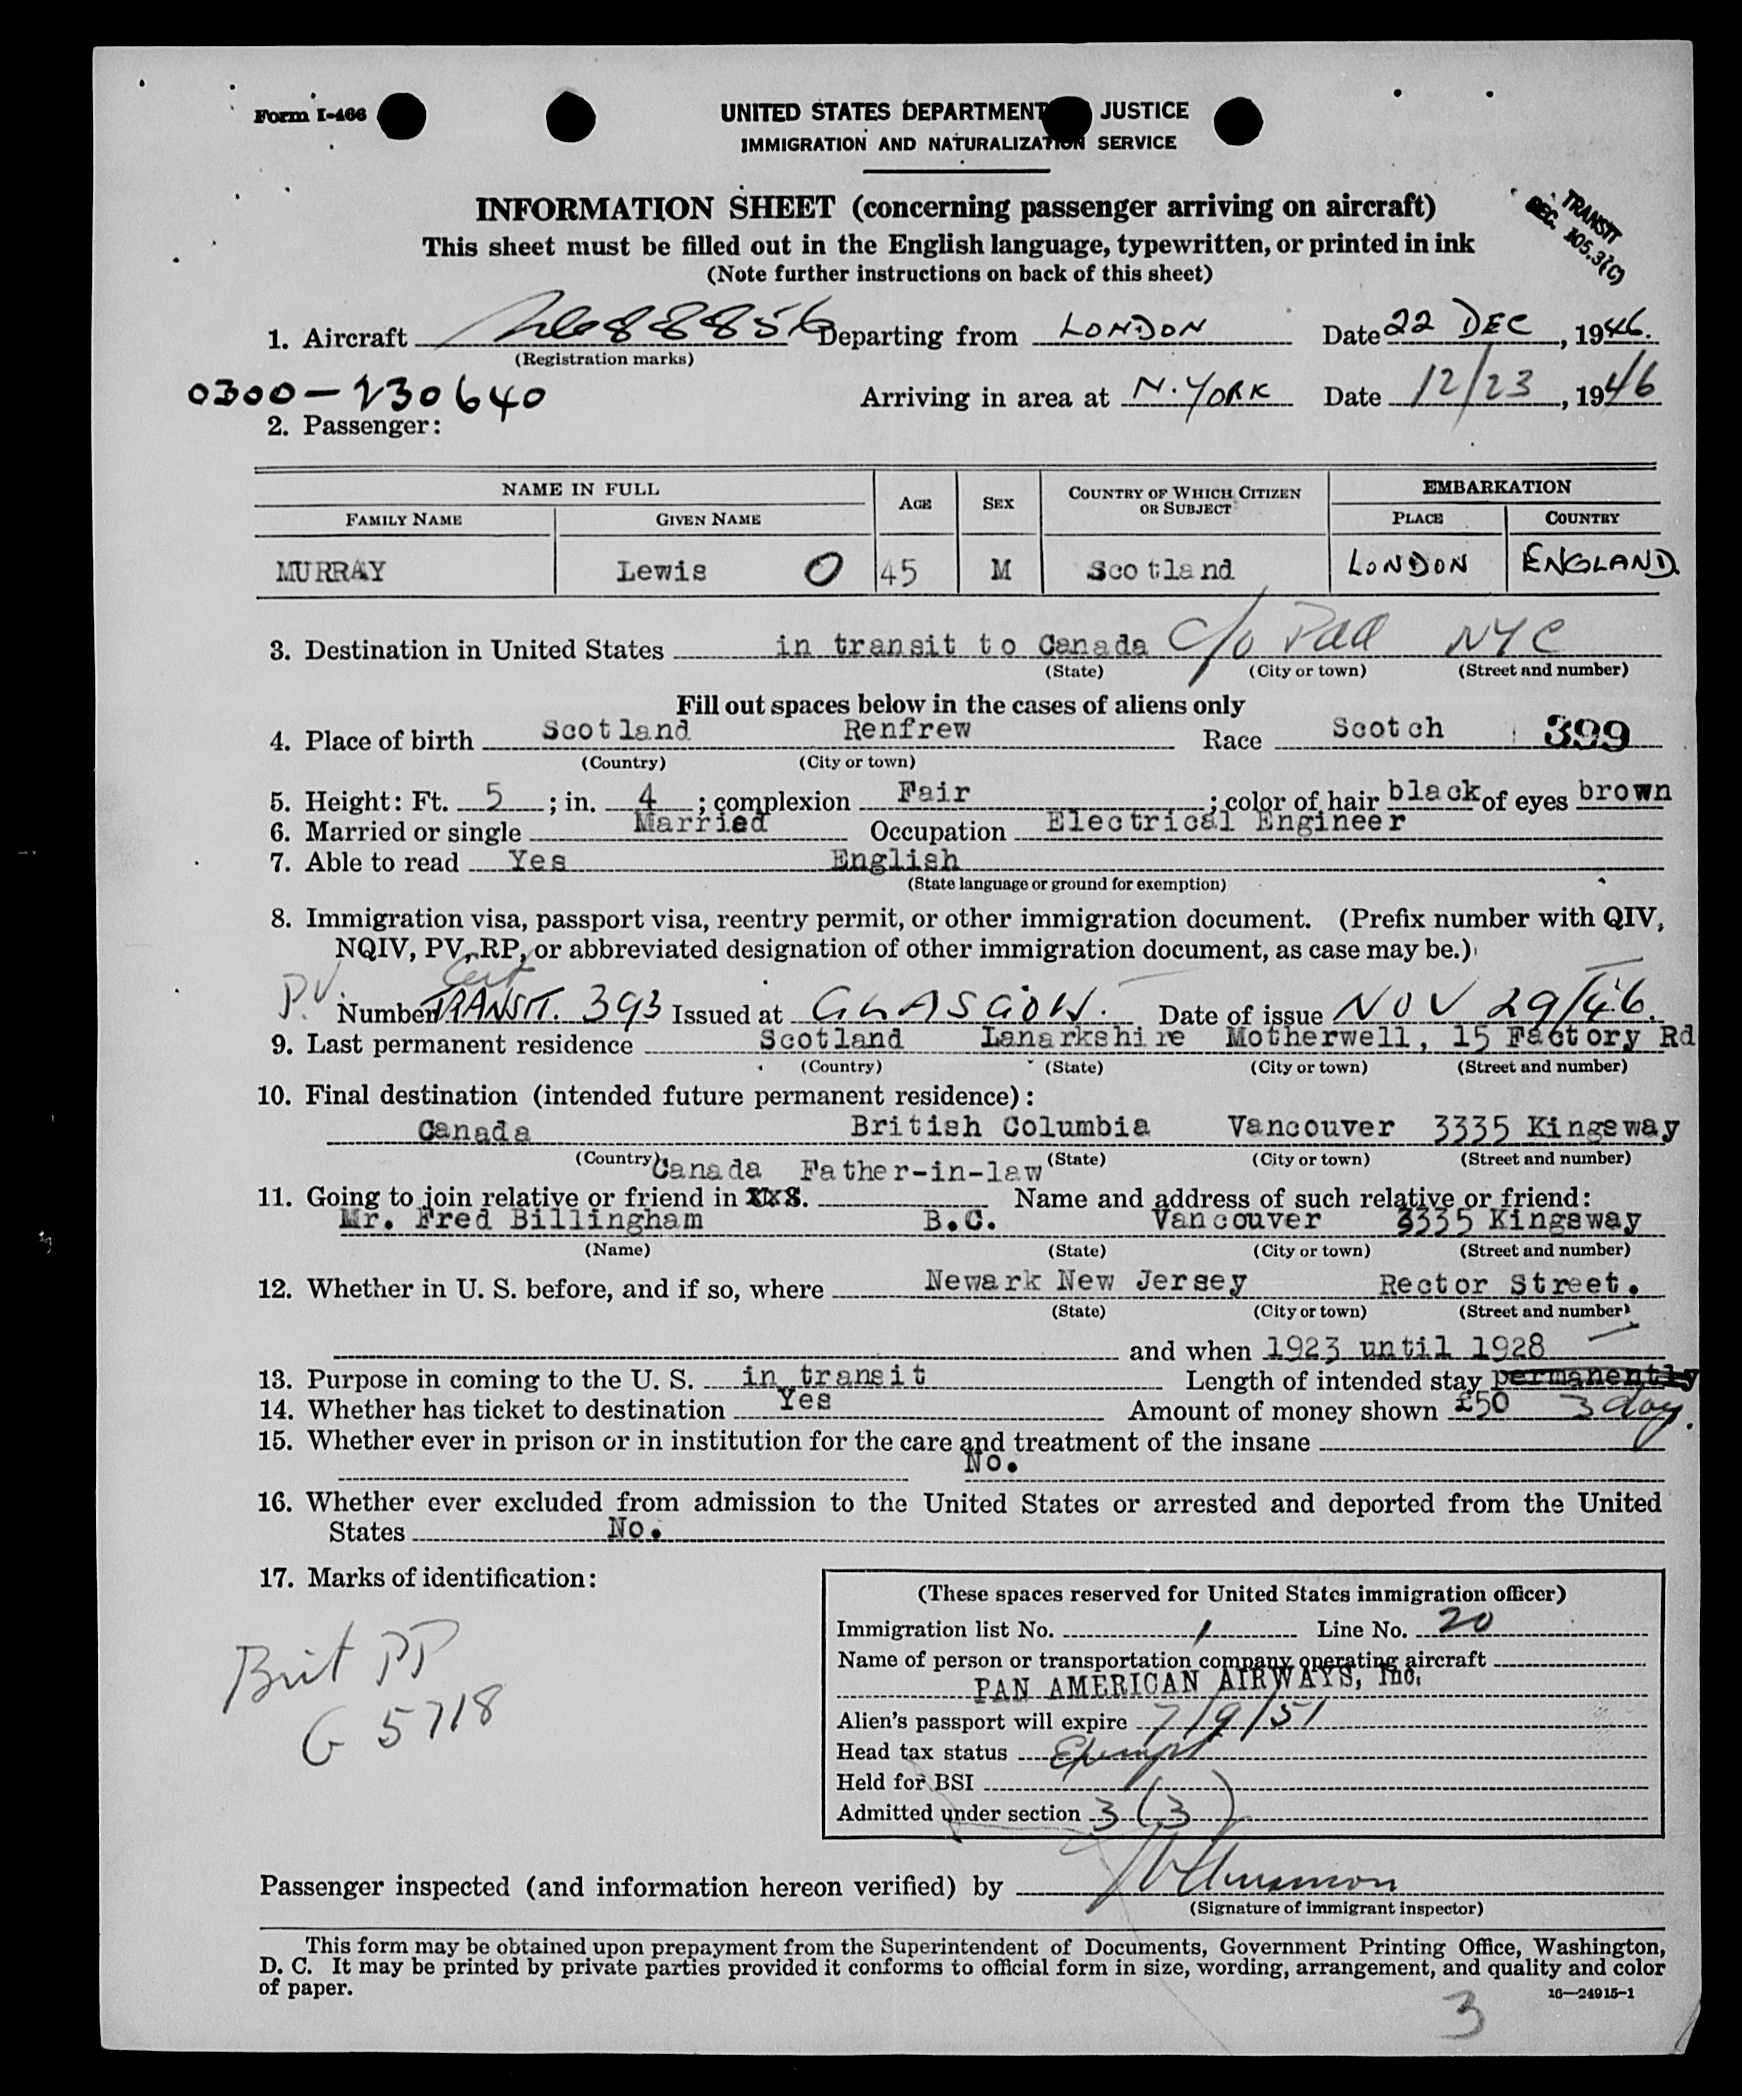 Form I-466
UNITED STATES DEPARTMENT JUSTICE
IMMIGRATION AND NATURALIZATION SERVICE
INFORMATION SHEET (concerning passenger arriving on aircraft)
TRANSIT
SEC. 105.3(C)
This sheet must be filled out in the English language, typewritten, or printed in ink
(Note further instructions on back of this sheet)
1. Aircraft 88856 Departing from LONDON Date 22 DEC, 1946.
(Registration marks)
0300-230640 Arriving in area at N. YORK Date 12/23, 1946
2. Passenger:
NAME IN FULL AGE SEX COUNTRY OF WHICH CITIZEN OR SUBJECT EMBARKATION
FAMILY NAME GIVEN NAME PLACE COUNTRY
MURRAY Lewis O 45 M Scotland LONDON ENGLAND.
3. Destination in United States in transit to Canada c/o PAA NYC
(State) (City or town) (Street and number)
Fill out spaces below in the cases of aliens only
4. Place of birth Scotland Renfrew Race Scotch 399
(Country) (City or town)
5. Height: Ft. 5; in. 4; complexion Fair; color of hair black of eyes brown
6. Married or single Married Occupation Electrical Engineer
7. Able to read Yes English
(State language or ground for exemption)
8. Immigration visa, passport visa, reentry permit, or other immigration document. (Prefix number with QIV,
NQIV, PV, RP, or abbreviated designation of other immigration document, as case may be.)
P.V. Cert
Number TRANSIT. 393 Issued at GLASGOW. Date of issue NOV 29/46.
9. Last permanent residence Scotland Lanarkshire Motherwell, 15 Factory Rd
(Country) (State) (City or town) (Street and number)
10. Final destination (intended future permanent residence):
Canada British Columbia Vancouver 3335 Kingsway
(Country) (State) (City or town) (Street and number)
Canada Father-in-law
11. Going to join relative or friend in U. S. Name and address of such relative or friend:
Mr. Fred Billingham B.C. Vancouver 3335 Kingsway
(Name) (State) (City or town) (Street and number)
12. Whether in U. S. before, and if so, where Newark New Jersey Rector Street.
(State) (City or town) (Street and number)
and when 1923 until 1928
13. Purpose in coming to the U. S. in transit Length of intended stay permanently
14. Whether has ticket to destination Yes Amount of money shown £50 3 day.
15. Whether ever in prison or in institution for the care and treatment of the insane
No.
16. Whether ever excluded from admission to the United States or arrested and deported from the United
States No.
17. Marks of identification:
Brit PP
G 5718
(These spaces reserved for United States immigration officer)
Immigration list No. 1 Line No. 20
Name of person or transportation company operating aircraft
PAN AMERICAN AIRWAYS, Inc.
Alien's passport will expire 7/9/51
Head tax status Exempt
Held for BSI
Admitted under section 3(3)
Passenger inspected (and information hereon verified) by
(Signature of immigrant inspector)
This form may be obtained upon prepayment from the Superintendent of Documents, Government Printing Office, Washington,
D. C. It may be printed by private parties provided it conforms to official form in size, wording, arrangement, and quality and color
of paper.
16—24915-1
3